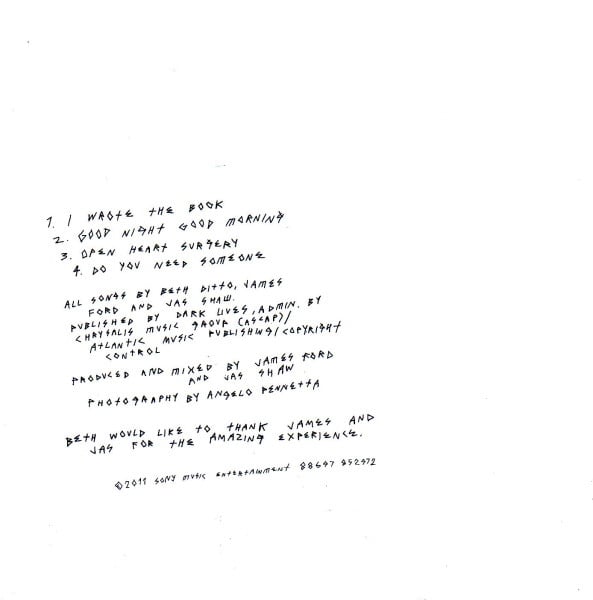 1. I WROTE THE BOOK
2. GOOD NIGHT GOOD MORNING
3. OPEN HEART SURGERY
4. DO YOU NEED SOMEONE
ALL SONGS BY BETH DITTO, JAMES
FORD AND JAS SHAW.
PUBLISHED BY DARK LIVES, ADMIN. BY
CHRYSALIS MUSIC GROUP (ASCAP)/
ATLANTIC MUSIC PUBLISHING/COPYRIGHT
CONTROL
PRODUCED AND MIXED BY JAMES FORD
AND JAS SHAW
PHOTOGRAPHY BY ANGELO PENNETTA
BETH WOULD LIKE TO THANK JAMES AND
JAS FOR THE AMAZING EXPERIENCE.
©2011 SONY MUSIC ENTERTAINMENT 88697 852972